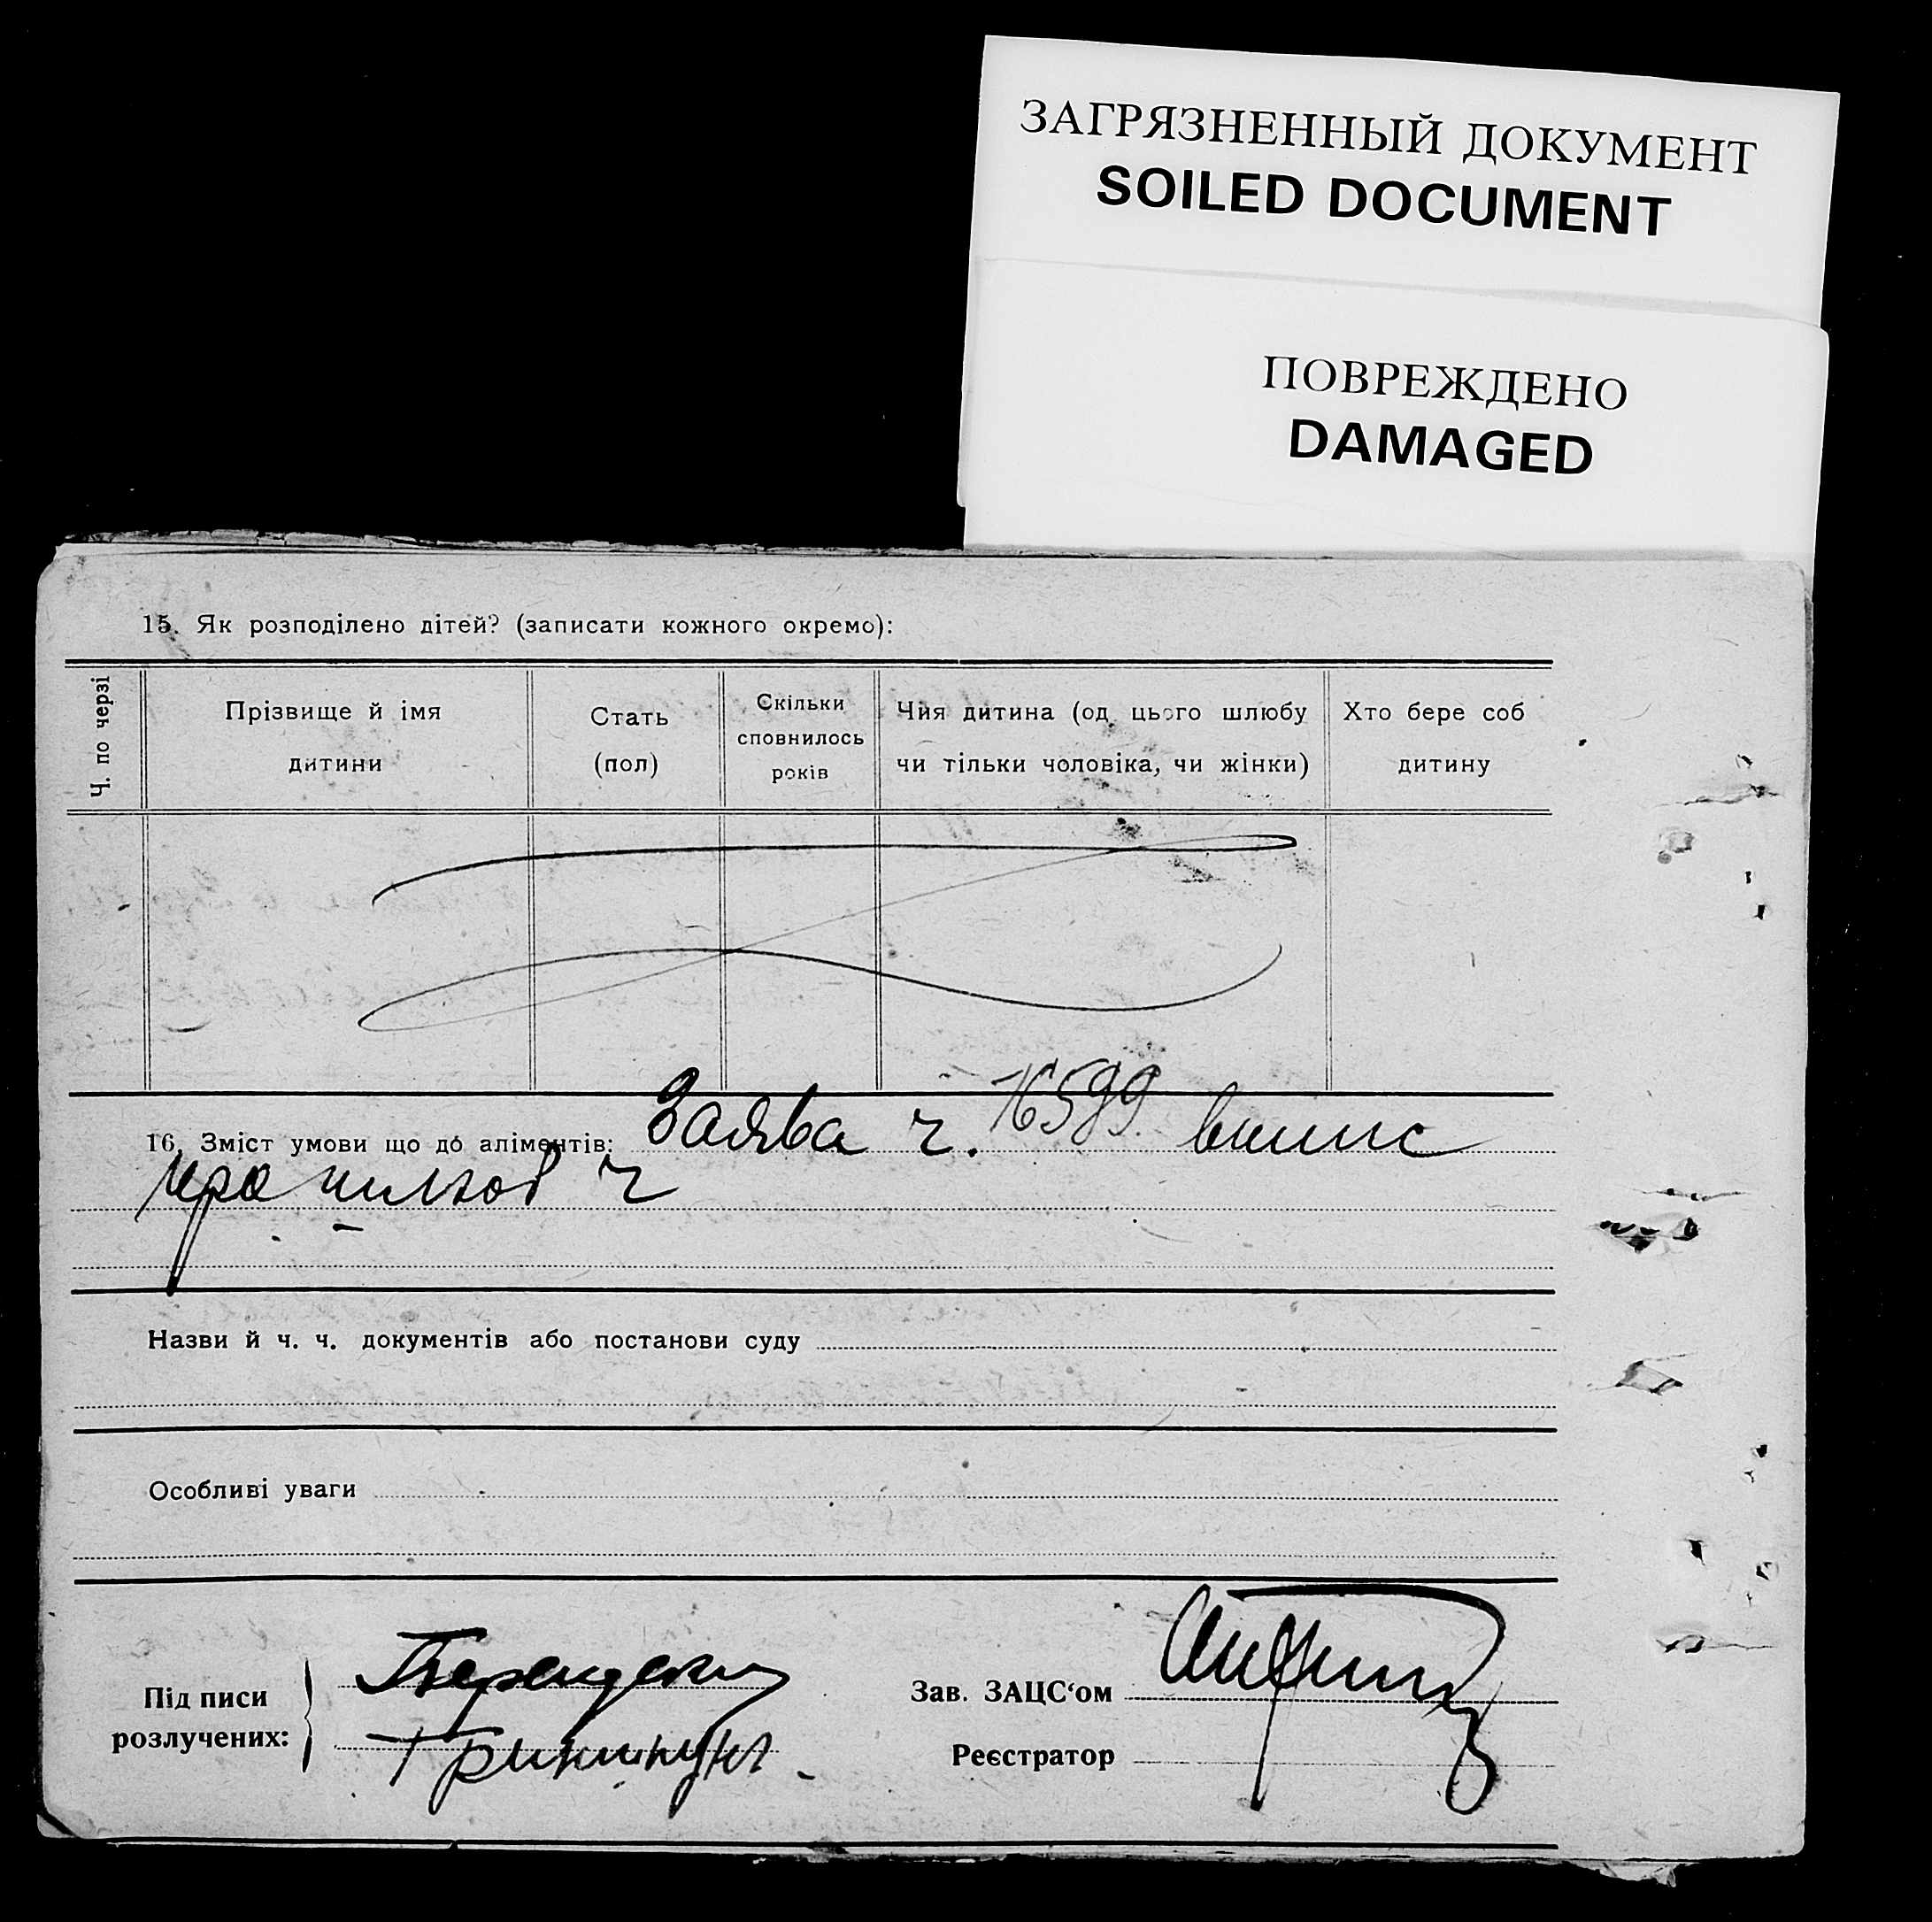 ЗАГРЯЗНЕННЫЙ ДОКУМЕНТ
SOILED DOCUMENT
ПОВРЕЖДЕНО
DAMAGED
15. Як розподілено дітей? (записати кожного окремо):
Ч. по черзі
Прізвище й імя
дитини
Стать
(пол)
Скільки
сповнилось
років
Чия дитина (од цього шлюбу
чи тільки чоловіка, чи жінки)
Хто бере соб
дитину
16. Зміст умови що до аліментів: Заява ч.
про
Назви й ч. ч. документів або постанови суду
Особливі уваги
Під писи
розлучених:
Зав. ЗАЦС‘ом
Реєстратор